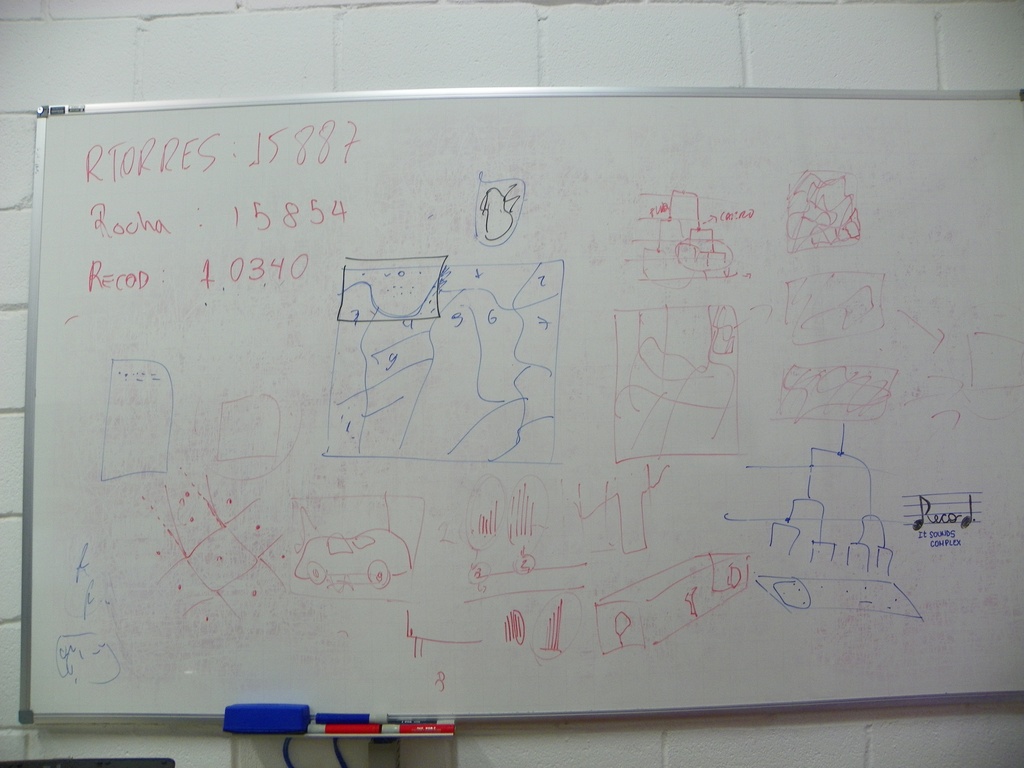 RTORRES : 15887
Rocha : 15854
RECOD : 10340
2
7
5
6
9
Recod
IT SOUNDS
COMPLEX